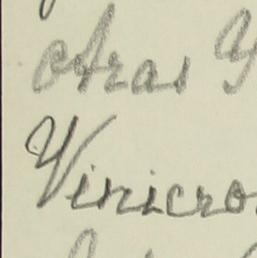 otras y
Vinicro